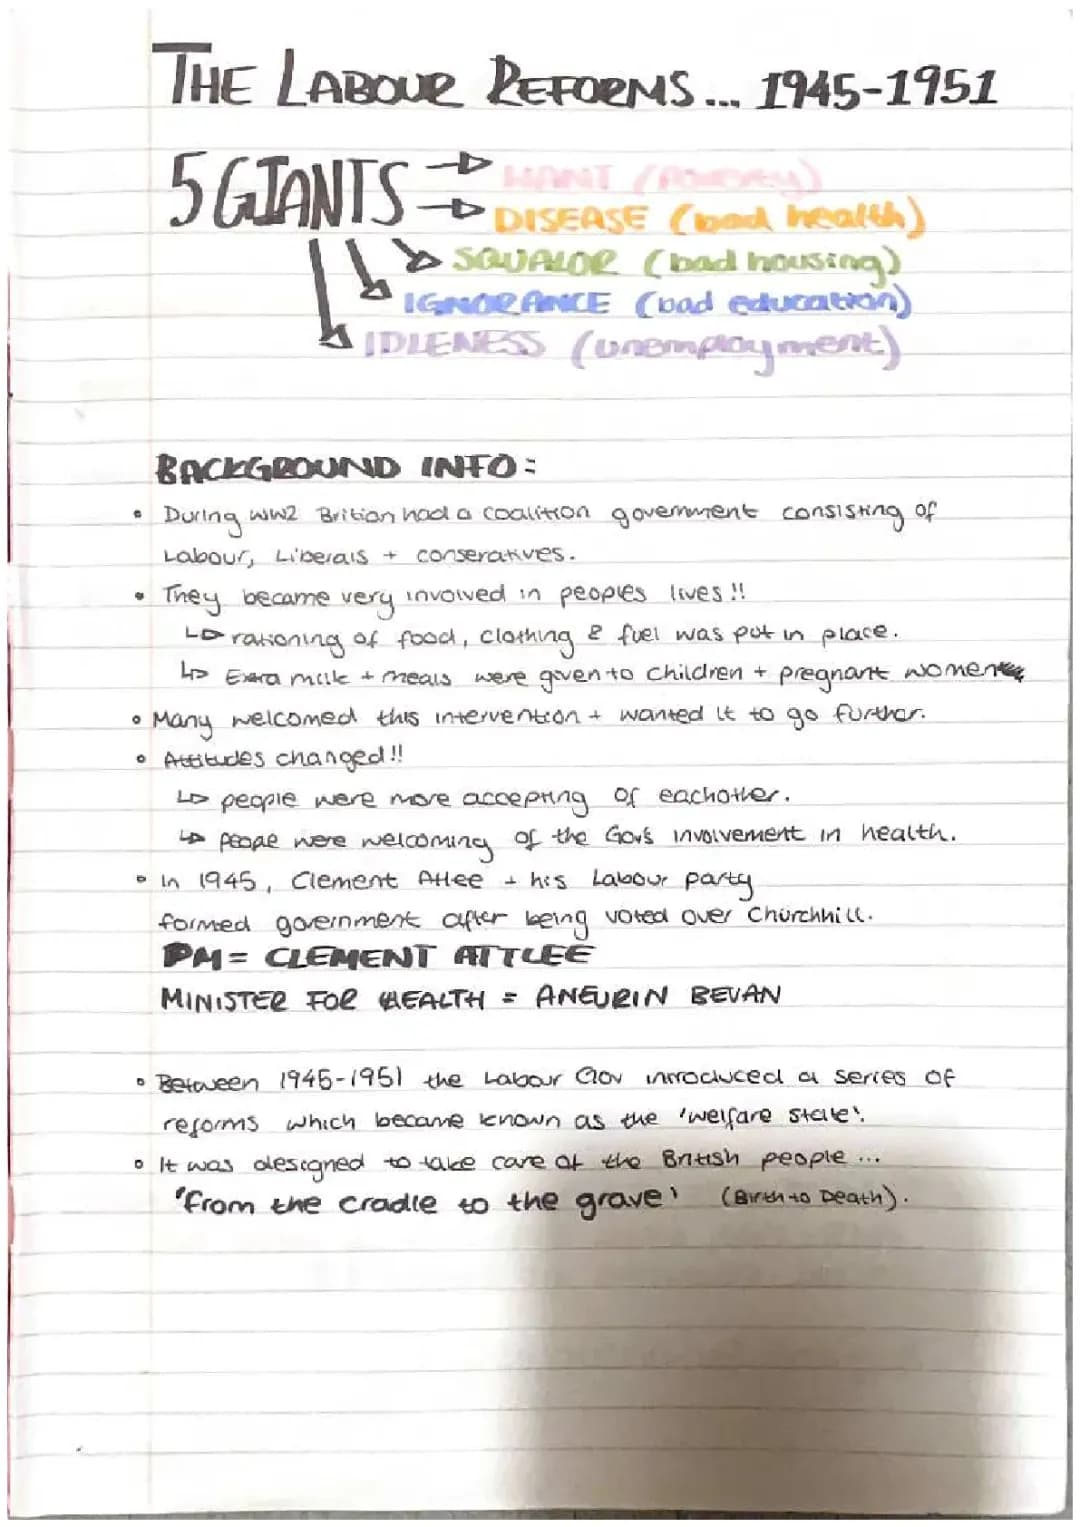 THE LABOUR REFORMS... 1945-1951
5 GIANTS → WANT (Poverty)
→ DISEASE (bad health)
→ SQUALOR (bad housing)
→ IGNORANCE (bad education)
→ IDLENESS (unemployment)
BACKGROUND INFO:
• During WW2 Britian had a coalition government consisting of
Labour, Liberals + conseratives.
• They became very involved in peoples lives!!
↳ rationing of food, clothing & fuel was put in place.
↳ Extra milk + meals were given to children + pregnant women
• Many welcomed this intervention + wanted it to go further.
• Attitudes changed!!
↳ people were more accepting of eachother.
↳ people were welcoming of the Gov's involvement in health.
• In 1945, Clement Attlee + his Labour party
formed government after being voted over Churchhill.
PM = CLEMENT ATTLEE
MINISTER FOR HEALTH = ANEURIN BEVAN
• Between 1945-1951 the Labour Gov introduced a series of
reforms which became known as the 'welfare state'.
• It was designed to take care of the British people ...
'from the cradle to the grave' (Birth to Death).